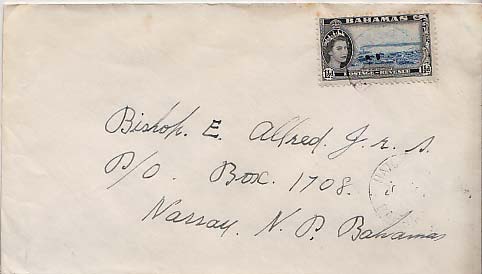 BAHAMAS
1½d POSTAGE-REVENUE 1½d
Bishop. E. Alfred. J.r.s.
P/O. Box. 1708.
Nassau. N. P. Bahamas